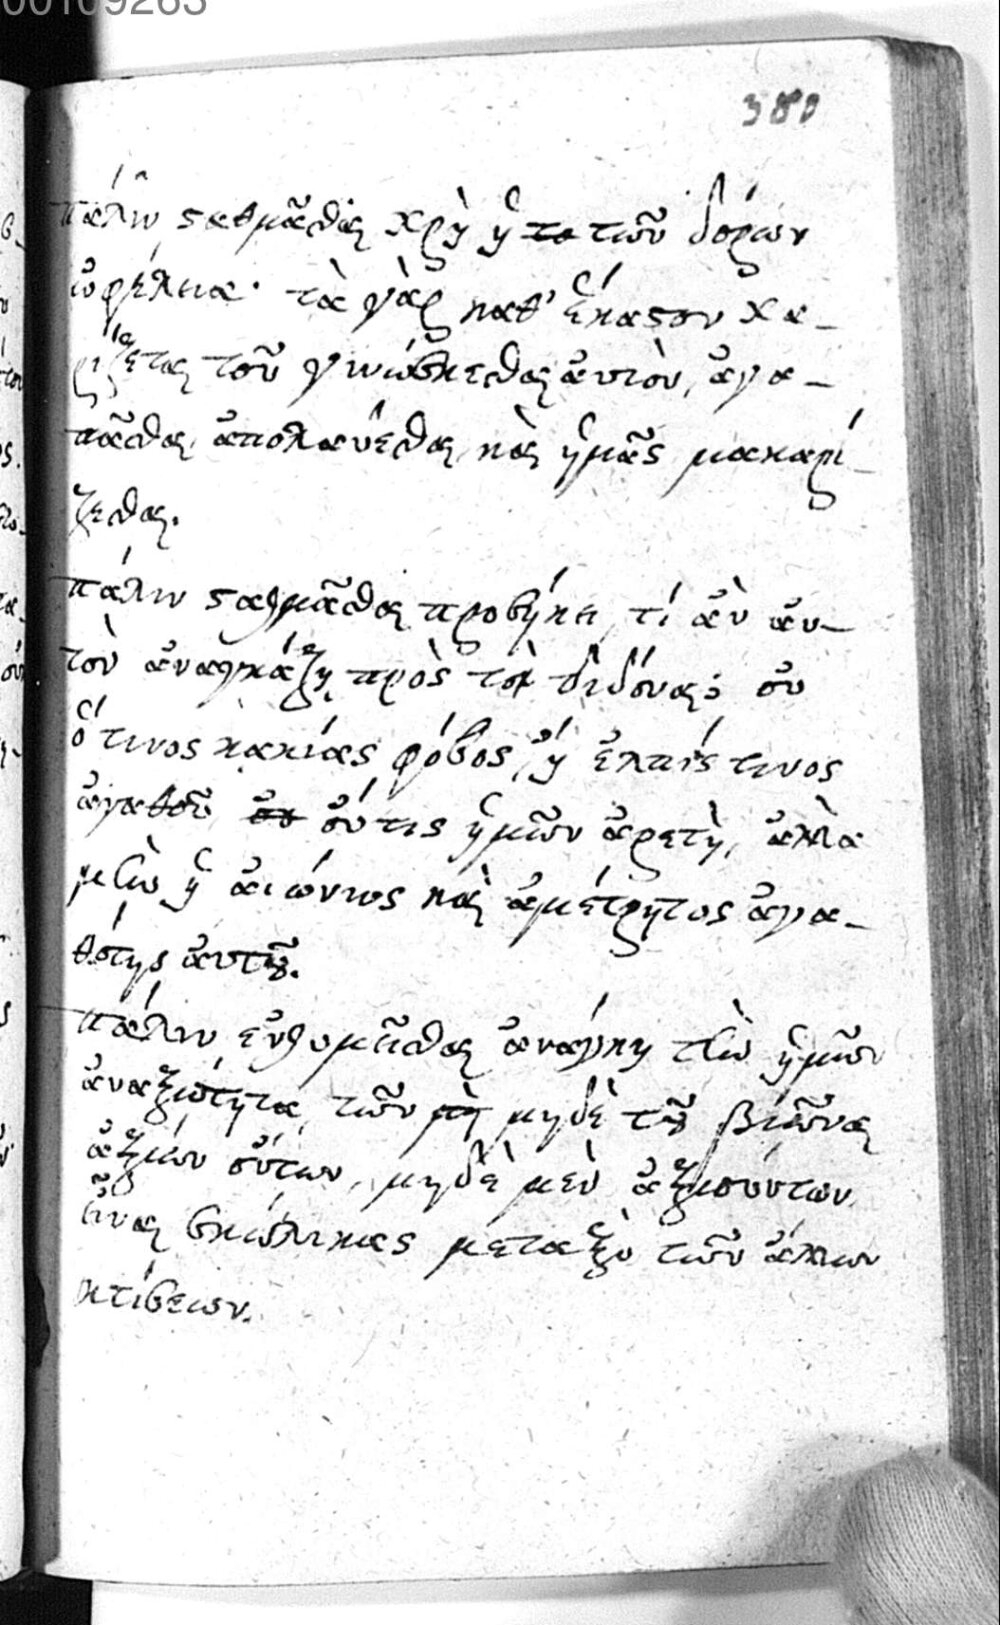 00109263
380
πάλιν σταθμᾶσθαι χρὴ ἡ το τῶν δόρων
ὠφέλεια· τὰ γὰρ καθ' ἕκαστον χα-
ρίζεται τοῦ γινώσκεσθαι ἀυτὸν, ἀγα-
πᾶσθαι, ἀπολαύεσθαι, καὶ ἡμᾶς μακαρί-
ζεσθαι.
πάλιν σταθμᾶσθαι προσήκει, τί ἂν ἀυ-
τὸν ἀναγκάζῃ πρὸς τὸ διδόναι; οὐ
ὅ τινος κακίας φόβος, ἢ ἐλπίς τινος
ἀγαθοῦ, οὔτις ἡμῶν ἀρετὴ, ἀλλὰ
μὴν ἡ ἀιώνιος καὶ ἀμέτρητος ἀγα-
θότης ἀυτοῦ.
πάλιν ἐνθυμεῖσθαι ἀνάγκη τὴν ἡμῶν
ἀναξιότητα, τῶν μηδὲ τοῦ βιῶναι
ἀξίων ὄντων, μηδὲ μὲν ἀξιούντων
εἶναι σκώληκας μεταξὺ τῶν ἄλλων
κτίσεων.